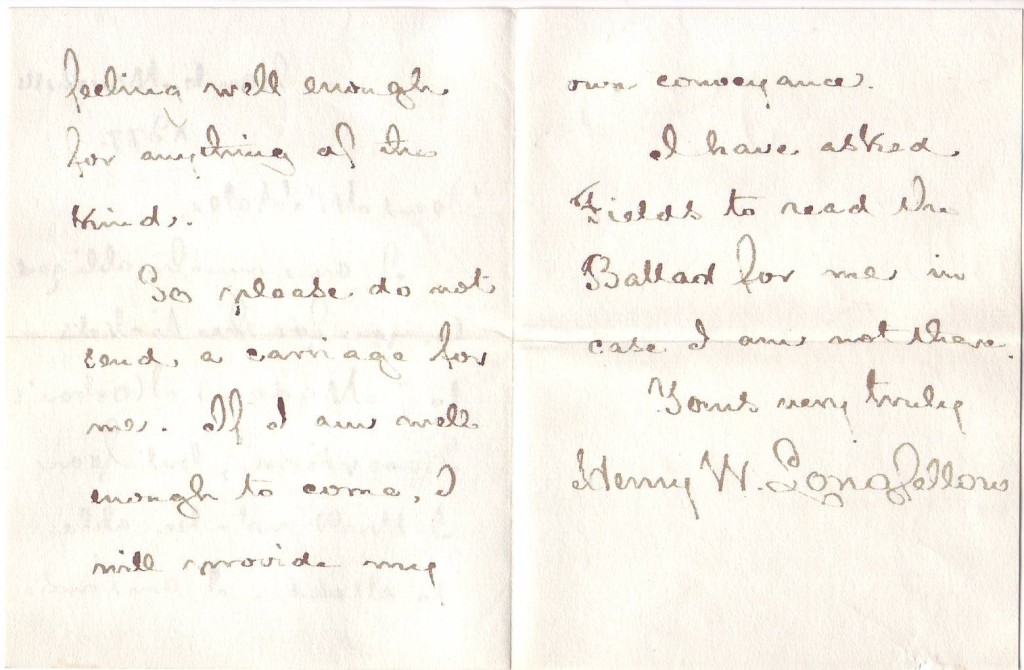 feeling well enough
for anything of the
kind.
So please do not
send a carriage for
me. If I am well
enough to come, I
will provide my
own conveyance.
I have asked
Fields to read the
Ballad for me in
case I am not there.
Yours very truly
Henry W. Longfellow